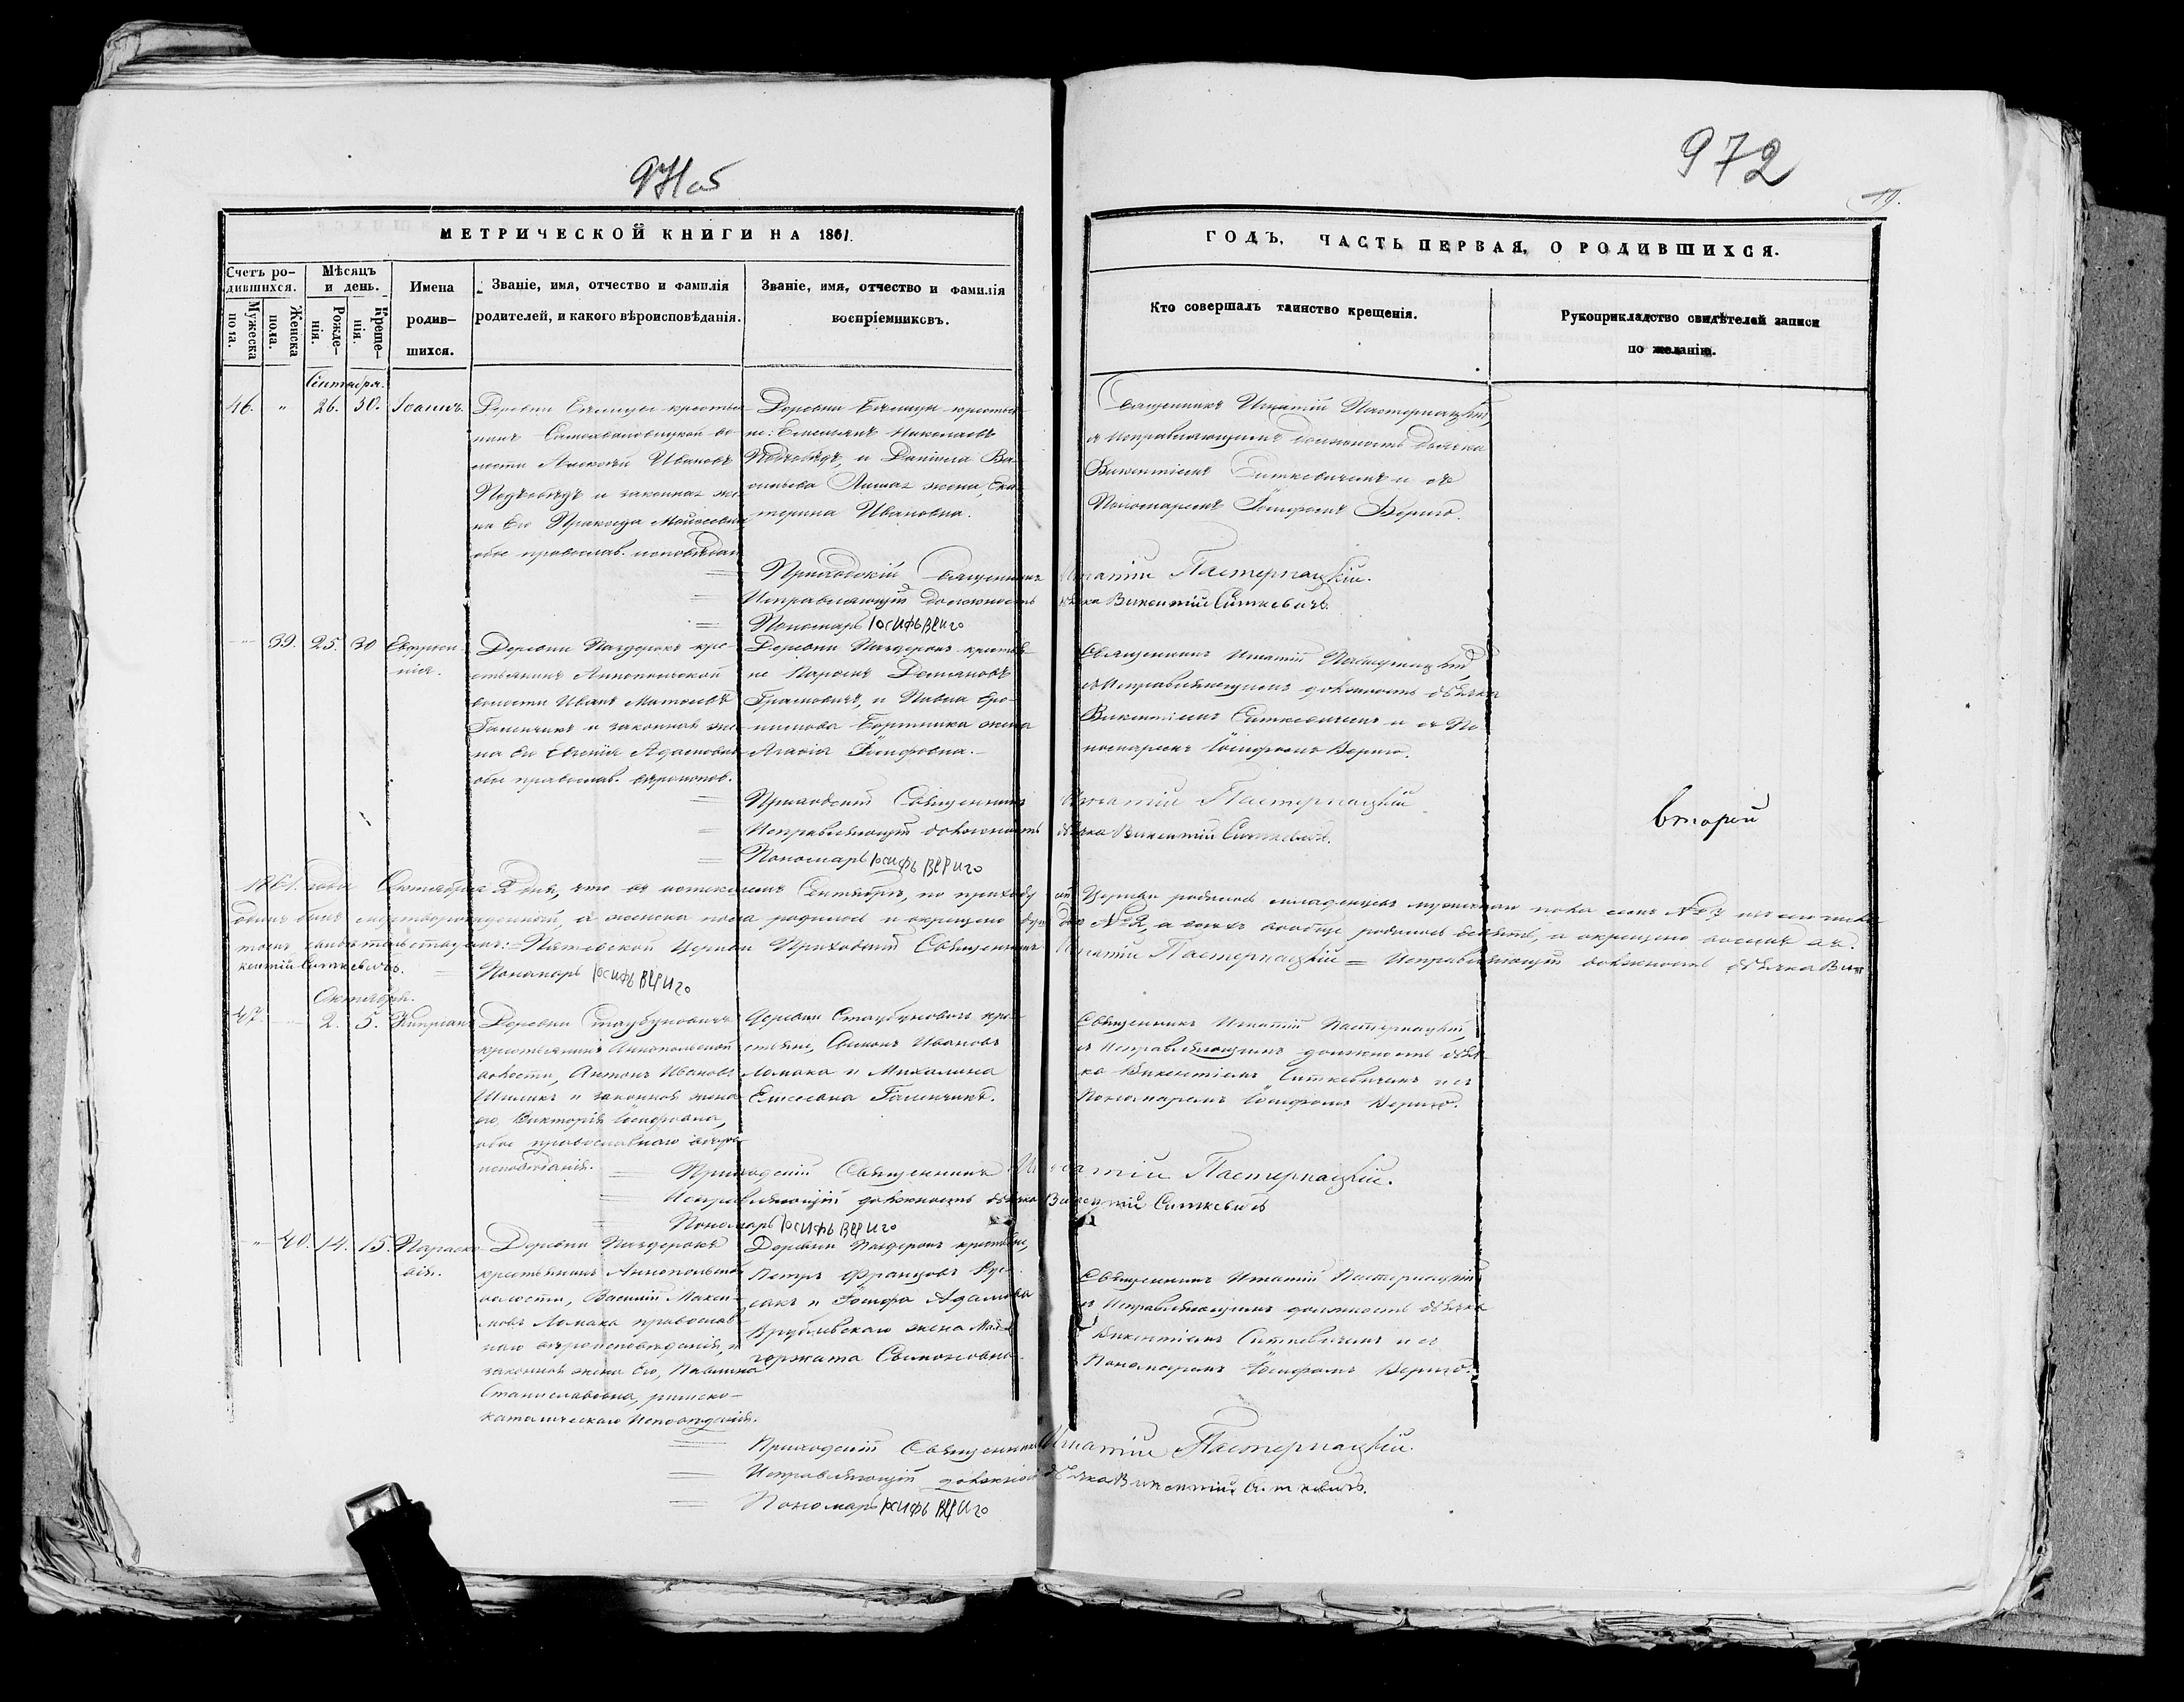 971об
972
19.
МЕТРИЧЕСКОЙ КНИГИ НА 1861.
ГОДЪ, ЧАСТЬ ПЕРВАЯ, О РОДИВШИХСЯ.
Счетъ ро-
дившихся.
Мужеска
пола.
Женска
пола.
Мѣсяцъ
и день.
Рожде-
нія.
Креще-
нія.
Имена
родив-
шихся.
Званіе, имя, отчество и фамилія
родителей, и какого вѣроисповѣданія.
Званіе, имя, отчество и фамилія
воспріемниковъ.
Кто совершалъ таинство крещенія.
Рукоприкладство свидѣтелей записи
по желанію.
Сентября.
46.
"
26.
30.
Іоаннъ.
Деревни крестья-
нинъ во-
лости Алексѣй Ивановъ
и законная же-
на его Моисеевна
обое православ. исповѣдан
Деревни крестья-
не: Емельянъ Николаевъ
и Даніила Ва-
сильева жена, Ека-
терина Ивановна.
Священникъ Игнатій Пастернацкій,
съ Исправляющимъ должность дьячка
Викентіемъ Ситкевичемъ и съ
Пономаремъ Іосифомъ Вериго.
Приходскій Священникъ Игнатій Пастернацкій.
Исправляющій должность дьячка Викентій Ситкевичъ.
Пономарь Іосифъ Вериго
"
39.
25.
30
Евфроси-
нія.
Деревни Паздерокъ кре-
стьянинъ Аннопольской
волости Иванъ Матвеевъ
Галенчикъ и законная же-
на его Евгенія Адамовна
обое православ. вѣроиспов.
Деревни Паздерокъ крестья-
не Демьяновъ
и Павла
Бортника жена
Агафія Іосифовна.
Священникъ Игнатій Пастернацкій
съ Исправляющимъ должность дьячка
Викентіемъ Ситкевичемъ и съ По-
номаремъ Іосифомъ Вериго.
Приходскій Священникъ Игнатій Пастернацкій
Исправляющій должность дьячка Викентій Ситкевичъ.
Пономарь Іосифъ Вериго
вторей
1861. года Октября 2 дня, что въ истекшемъ Сентябрѣ, по приходу сей Церкви родилось младенцевъ мужеска пола семь № 7 изъ сего числа
одинъ былъ мертворожденный, а женска пола родилось и окрещено два № 2, а всѣхъ вообще родилось девять, а окрещено восемь въ.
томъ свидѣтельствуемъ: Церкви Приходскій Священникъ Игнатій Пастернацкій = Исправляющій должность дьячка Ви-
кентій Ситкевичъ. Пономарь Іосифъ Вериго
Октября.
47.
2.
5.
Кипріанъ
Деревни
крестьянинъ Аннопольской
волости, Антонъ Ивановъ
и законная жена
его, Викторія Іосифовна,
обое православнаго вѣро-
исповѣданія.
Деревни кре-
стьяне, Симонъ Ивановъ
Ломака и Михалина
Галенчикъ.
Священникъ Игнатій Пастернацкій,
съ Исправляющимъ должность дьяч-
ка Викентіемъ Ситкевичемъ и съ
Пономаремъ Іосифомъ Вериго.
Приходскій Священникъ Игнатій Пастернацкій.
Исправляющій должность дьячка Викентій Ситкевичъ
Пономарь Іосифъ Вериго
"
40.
14.
15.
Параске-
вія.
Деревни Паздерокъ
крестьянинъ Аннопольской
волости, Василій Макси-
мовъ Ломака православ-
наго вѣроисповѣданія, и
законная жена его, Павлина
Станиславовна, римско-
католическаго Исповѣданія.
Деревни Паздерокъ крестьяне,
Петръ Францовъ Ру-
сакъ и Іосифа Адамова
Врублевскаго жена Мал-
гержата Симоновна.
Священникъ Игнатій Пастернацкій
съ Исправляющимъ должность дьячка
Викентіемъ Ситкевичемъ и съ
Пономаремъ Іосифомъ Вериго.
Приходскій Священникъ Игнатій Пастернацкій.
Исправляющій должность дьячка Викентій Ситкевичъ.
Пономарь Іосифъ Вериго